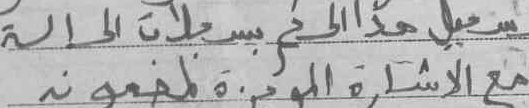 سجيل هذا الحكم بسجلات الحالة
مع الاشارة الموجزة لمضمونه